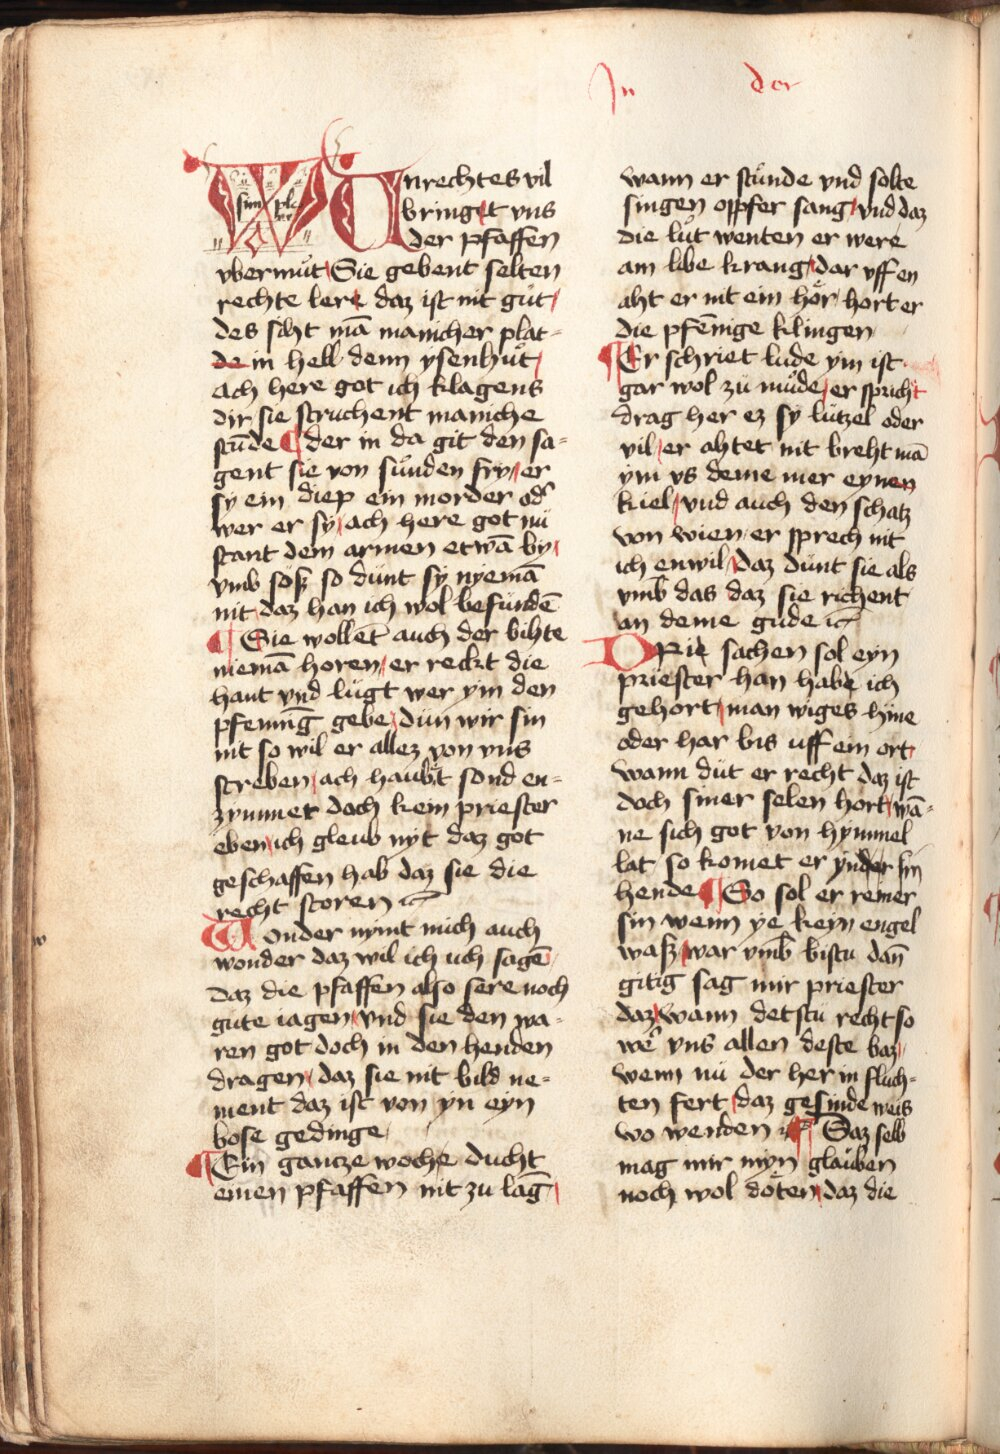 In der
Unrechtes vil
bringet vns
der pfaffen
vbermuͦt Sie gebent selten
rechte lere daz ist nit guͦt
des siht mā manicher plat-
de in hell denn ysenhuͦt
ach here got ich klagens
dir sie struchent maniche
stūde der in da git den sa-
gent sie von suͦnden fry er
sy ein diep ein morder od̕
wer er sy ach here got nū
stant dem armen etwā by
vmb soͤsz so duͦnt sy nyemā
nit daz han ich wol befundē
Sie wollēt auch der bihte
niemā horen er reckt die
hant vnd luͦgt wer ym den
pfenni̅g gebe duͦn wir sin
nit so wil er allez von vns
streben ach haubt sond en-
zymmet doch kein priester
eben ich gleub nyt daz got
geschaffen hab daz sie die
recht storen
Wonder nymt mich auch
wonder daz wil ich uch sagē
daz die pfaffen also sere noch
gute iagen vnd sie den wa-
ren got doch in den henden
dragen daz sie nit bild ne-
ment daz ist von yn eyn
bose gedinge
Ein gantze woche ducht
einen pfaffen nit zu lāg
wann er stuͦnde vnd solte
singen opfer sang vnd daz
die luͦt wenten er were
am libe krang dar vff en
aht er nit ein hoͤr hort er
die pfēnige klingen
Er schriet lude ym ist
gar wol zuͦ muͦde er spricht
drag her ez sy luͦtzel oder
vil er ahtet nit breht mā
ym vs deme mer eynen
kiel vnd auch den schatz
von wien er sprech nit
ich enwil daz duͦnt sie als
vmb das daz sie richent
an deme gude
Drie sachen sol eyn
priester han habe ich
gehort man wiges hyne
oder har bis uff ein ort
wann duͦt er recht daz ist
doch siner selen hort wā-
ne sich got von hymmel
lat so komet er ynder sin
hende So sol er reiner
sin wenn ye keyn engel
wasz war vmb bistu dan̄
gitig sag mir priester
daz wann detstu recht so
wer̕ vns allen deste baz
wenn nuͦ der her in fluch-
ten fert daz gesinde weis
wo wenden Daz selb
mag mir myn glauben
noch wol doͤten daz die